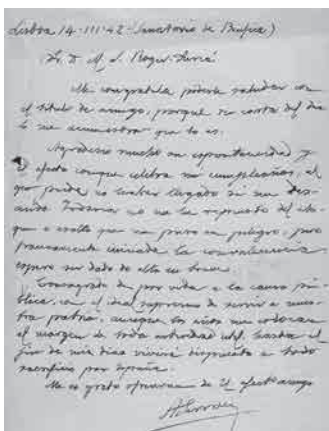 Lisboa 14-III-42 (Sanatorio de Benfica)
Sr. D. M. S. Roger
Me congratula poderle saludar con
el titulo de amigo, porque su carta del dia
me demuestra que lo es.
Agradezco mucho su espontaneidad y
el afecto conque celebra mi cumpleaños, el
que pude no haber llegado si me des-
cuido. Todavia no me he repuesto del ata-
que que me puso en peligro, pero
francamente iniciada la convalecencia
espero ser dado de alta en breve.
Consagrada mi vida a la causa pú-
blica, con el ideal supremo de servir a nues-
tra patria, aunque los años me colocan
al margen de toda actividad util, hasta el
fin de mis dias viviré dispuesto a todo
sacrificio por España.
Me es grato de Vd. afectº amigo